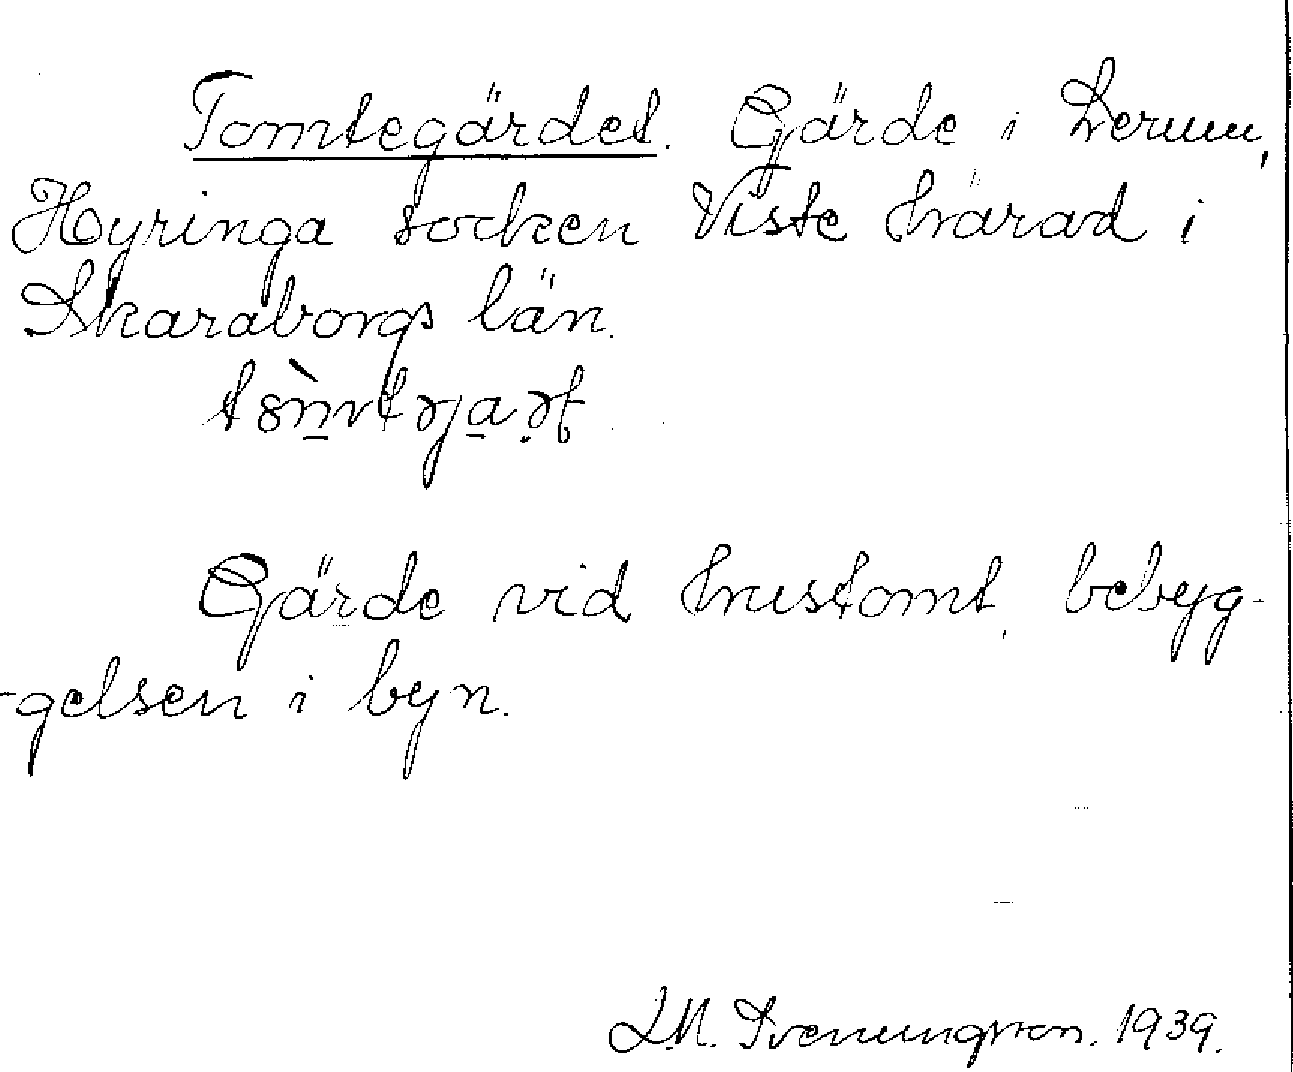 Tomtegärdet. Gärde i Lerum,
Hyringa socken Viste härad i
Skaraborgs län.
Gärde vid hustomt, bebyg-
-gelsen i byn.
L.M. Svenungsson. 1939.